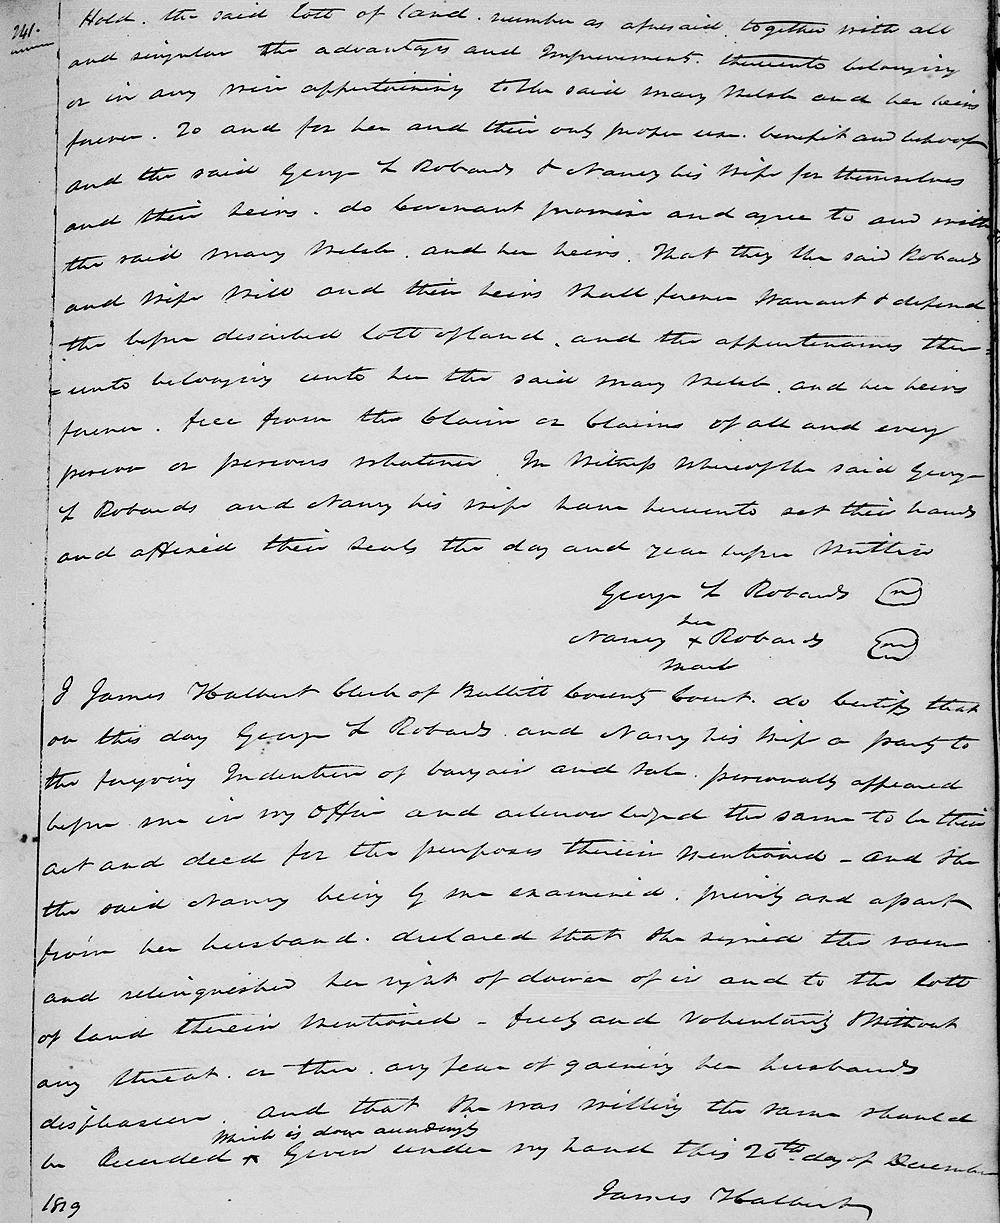 241.
Hold. the said lott of land. number as afresaid together with all
and singular the advantages and Improvement. thereunto belonging
or in any wise appertaining to the said Mary Welsh and her heirs
forever. To and for her and their only proper use. benefit and behoof
and the said George L Robards & Nancy his Wife for themselves
and their heirs. do Covenant promise and agree to and with
the said Mary Welsh. and her heirs. That they the said Robards
and Wife Will and their heirs Shall forever Warrant & defend
the before described lott of land. and the appurtenances there=
=unto belonging unto her the said Mary Welsh. and her heirs
forever. free from the Claim or Claims of all and every
person or persons whatever In Witness Whereof the said George
L Robards and Nancy his wife have hereunto set their hands
and affixed their Seals the day and year before Written
George L Robards
her
Nancy x Robards
mark
I James Halbert Clerk of Bullitt County Court. do certify that
on this day George L Robards and Nancy his Wife a party to
the forgoing Indenture of bargain and sale. personally appeared
before me in my Office and acknowledged the same to be their
act and deed for the purposes therein Mentioned - and She
the said Nancy being by me examined. privily and apart
from her husband. declared that She signed the same
and relinquished her right of dower of in and to the lott
of land therein Mentioned - freely and Voluntarily Without
any threat. or ther. any fear of gaining her husbands
displeasure. and that She was willing the same should
Which is done accordingly
be Recorded ^ Given under my hand this 20th day of December
1819
James Halbert